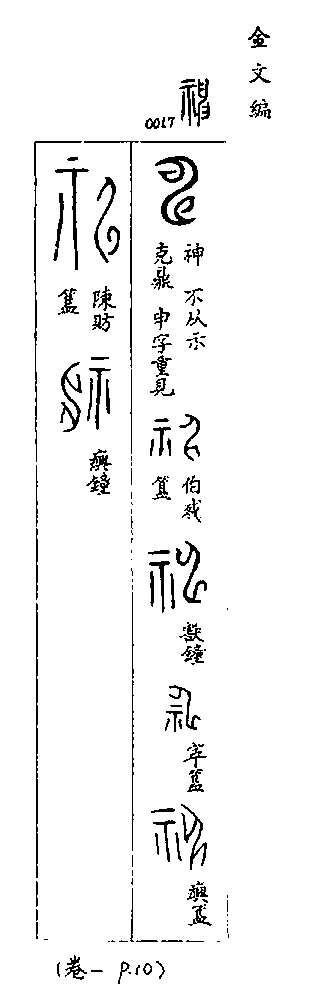 金文編
0017
神 不从示
克鼎 申字重見
伯𢦚
簋
㝬鐘
寧簋
𤼈盨
陳肪
簋
𤼈鐘
(卷一 P.10)